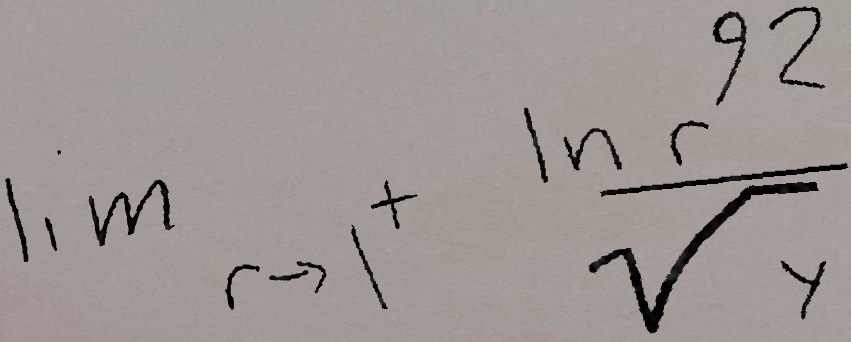 \lim_{r \to 1^+} \frac{\ln r^{92}}{\sqrt{y}}